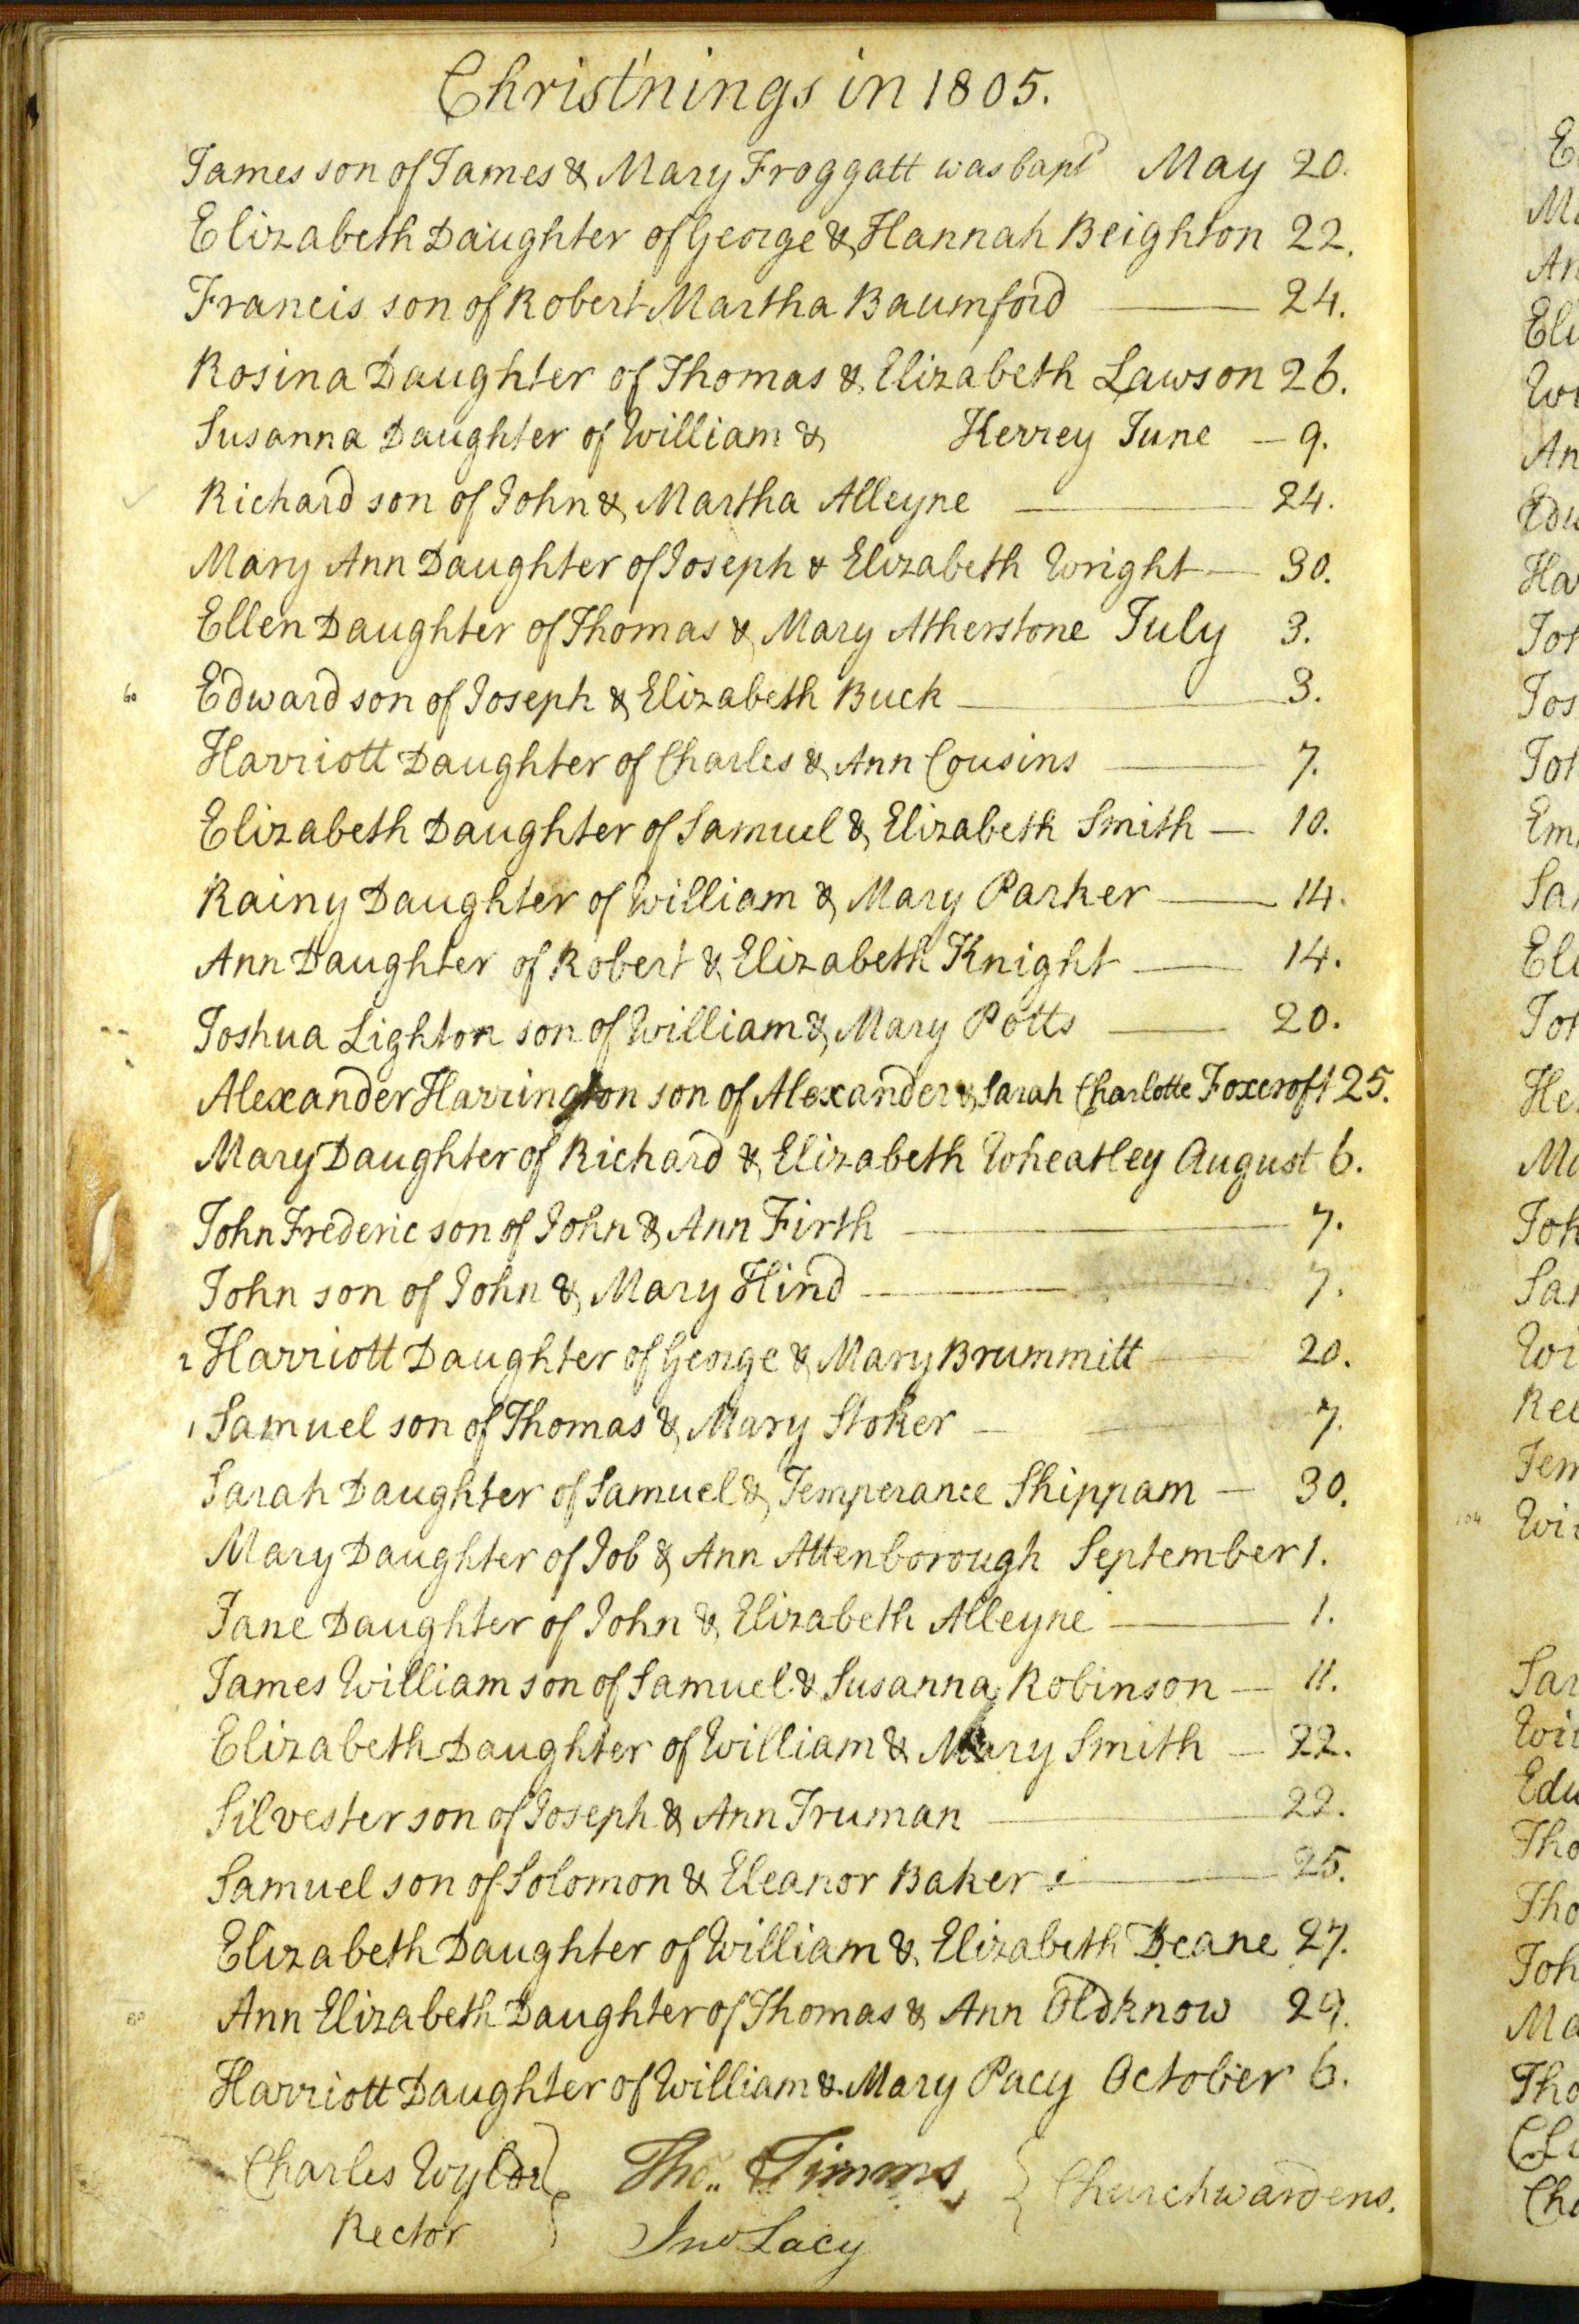 Christ'nings in 1805.
James son of James & Mary Froggatt was bapd May 20.
Elizabeth Daughter of George & Hannah Beighton 22.
Francis son of Robert Martha Baumford — 24.
Rosina Daughter of Thomas & Elizabeth Lawson 26.
Susanna Daughter of William & Kerrey June — 9.
Richard son of John & Martha Alleyne — 24.
Mary Ann Daughter of Joseph & Elizabeth Wright — 30.
Ellen Daughter of Thomas & Mary Atherstone July 3.
60 Edward son of Joseph & Elizabeth Buck — 3.
Harriott Daughter of Charles & Ann Cousins — 7.
Elizabeth Daughter of Samuel & Elizabeth Smith — 10.
Rainy Daughter of William & Mary Parker — 14.
Ann Daughter of Robert & Elizabeth Knight — 14.
Joshua Lighton son of William & Mary Potts — 20.
Alexander Harrington son of Alexander & Sarah Charlotte Foxcroft 25.
Mary Daughter of Richard & Elizabeth Wheatley August 6.
John Frederic son of John & Ann Firth — 7.
John son of John & Mary Hind — 7.
2 Harriott Daughter of George & Mary Brummitt — 20.
1 Samuel son of Thomas & Mary Stoker — 7.
Sarah Daughter of Samuel & Temperance Shippam — 30.
Mary Daughter of Job & Ann Attenborough September 1.
Jane Daughter of John & Elizabeth Alleyne — 1.
James William son of Samuel & Susanna Robinson — 11.
Elizabeth Daughter of William & Mary Smith — 22.
Silvester son of Joseph & Ann Truman — 22.
Samuel son of Solomon & Eleanor Baker — 25.
Elizabeth Daughter of William & Elizabeth Deane 27.
Ann Elizabeth Daughter of Thomas & Ann Oldknow 29.
Harriott Daughter of William & Mary Pacy October 6.
Charles Wylde Thos. Timms Churchwardens.
Rector Jno Lacy